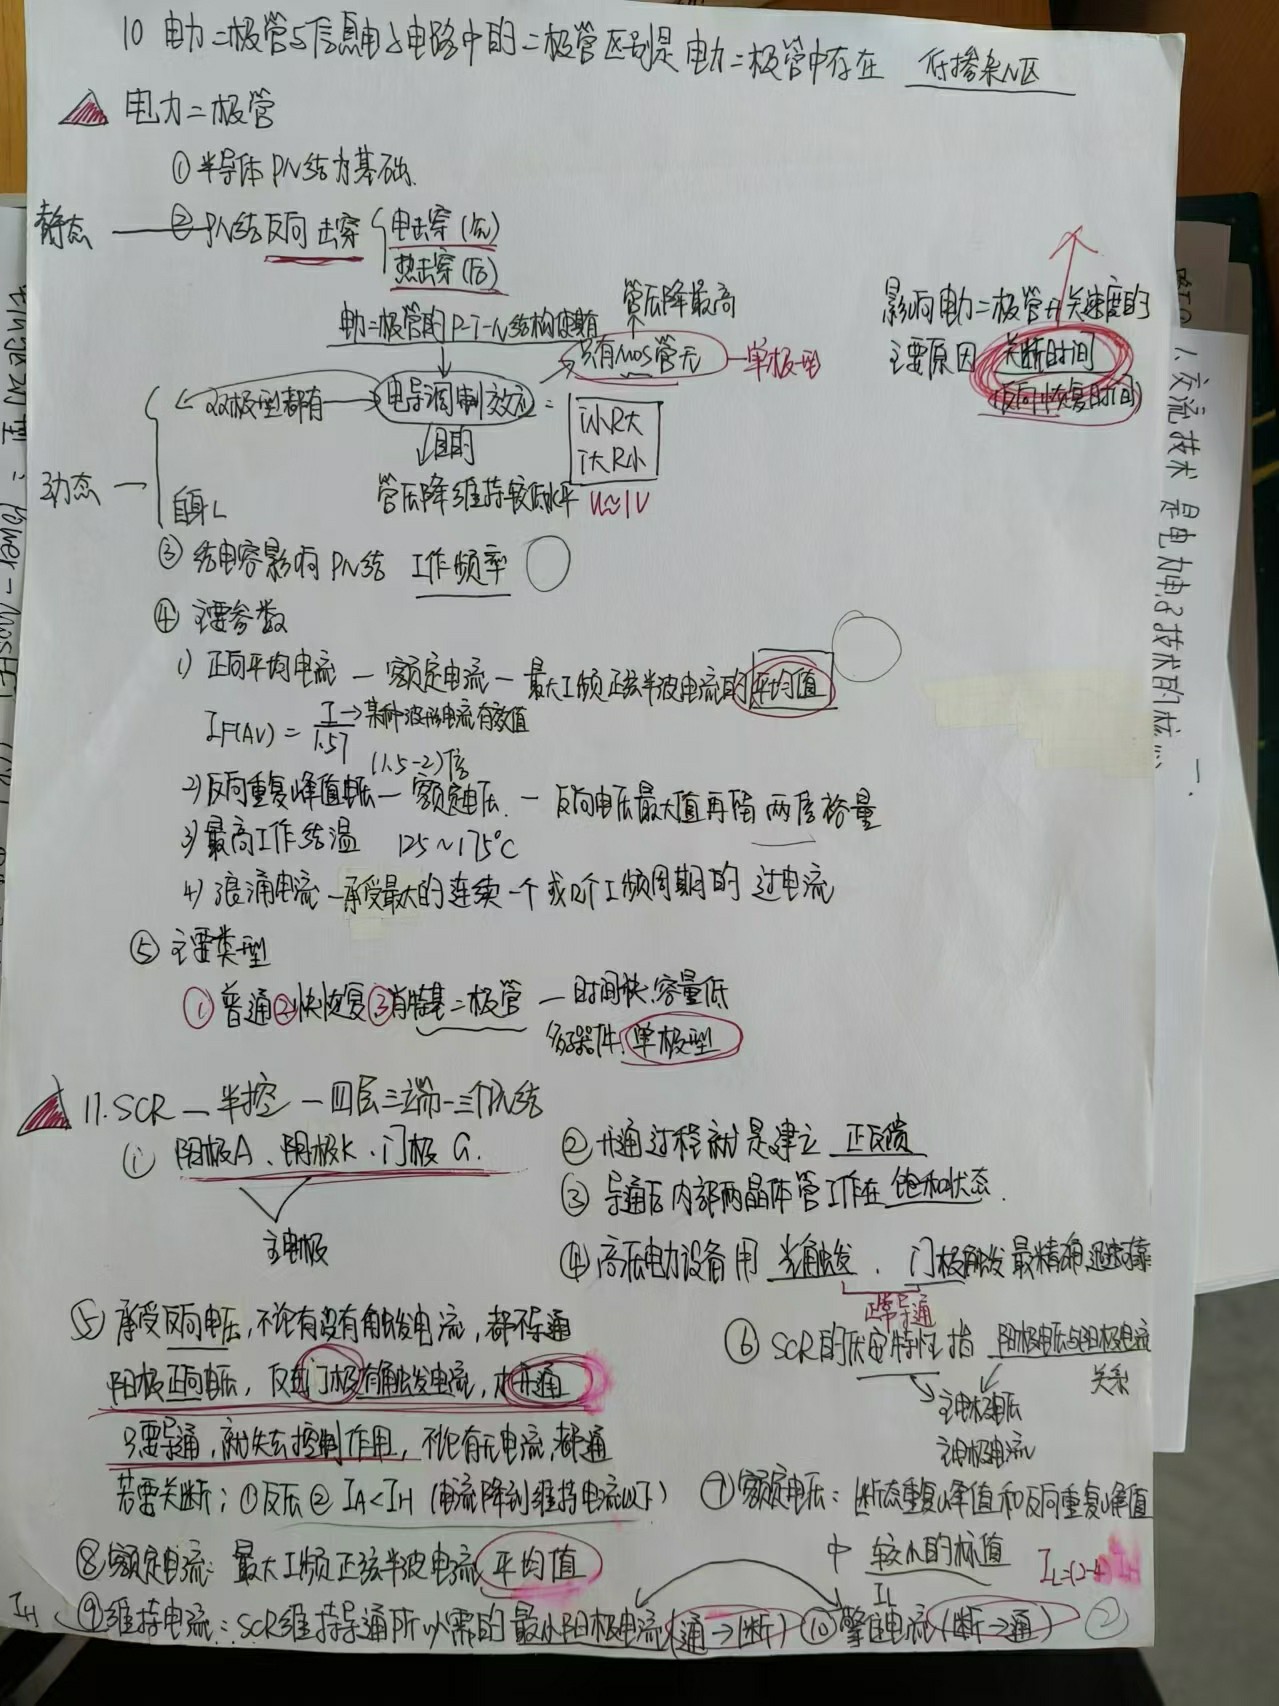 10 电力二极管与信息电子电路中的二极管区别是电力二极管中存在 低掺杂N区
电力二极管
①半导体PN结为基础.
静态 — ②PN结反向击穿 { 电击穿(先)
热击穿(后)
电力二极管的P-I-N结构使其有
管压降最高
只有MOS管无 — 单极型
影响电力二极管开关速度的
主要原因 关断时间
(反向恢复时间)
双极型都有 电导调制效应 =
i小R大
i大R小
目的
管压降维持较低水平 U≈1V
动态
自身L
③结电容影响PN结 工作频率
④主要参数
1) 正向平均电流 — 额定电流 — 最大工频正弦半波电流的平均值
IF(AV) = I/1.57 → 某种波形电流有效值
(1.5-2)倍
2) 反向重复峰值电压 — 额定电压. — 反向电压最大值再留两倍裕量
3) 最高工作结温 125~175℃
4) 浪涌电流 — 承受最大的连续一个或几个工频周期的过电流
⑤主要类型
①普通②快恢复③肖特基二极管 — 时间快.容量低
多子器件.单极型
11.SCR — 半控 — 四层三端 - 三个PN结
①阳极A、阴极K.门极G.
主电极
②开通过程就是建立 正反馈
③导通后内部两晶体管工作在 饱和状态.
④高压电力设备用 光触发. 门极触发最精确迅速可靠
正常导通
⑤承受反向电压,不论有没有触发电流,都不导通
阳极正向电压,反在门极有触发电流,才开通
只要导通,就失去控制作用,不论有无电流,都通
若要关断:①反压②IA<IH (电流降到维持电流以下)
⑥SCR的伏安特性指 阳极电压与阳极电流
关系
主电极电压
主电极电流
⑦额定电压:断态重复峰值和反向重复峰值
中 较小的标值
⑧额定电流:最大工频正弦半波电流平均值
IL=(2-4)IH
IH ⑨维持电流:SCR维持导通所必需的最小阳极电流(通→断) ⑩擎住电流(断→通)
IL
②